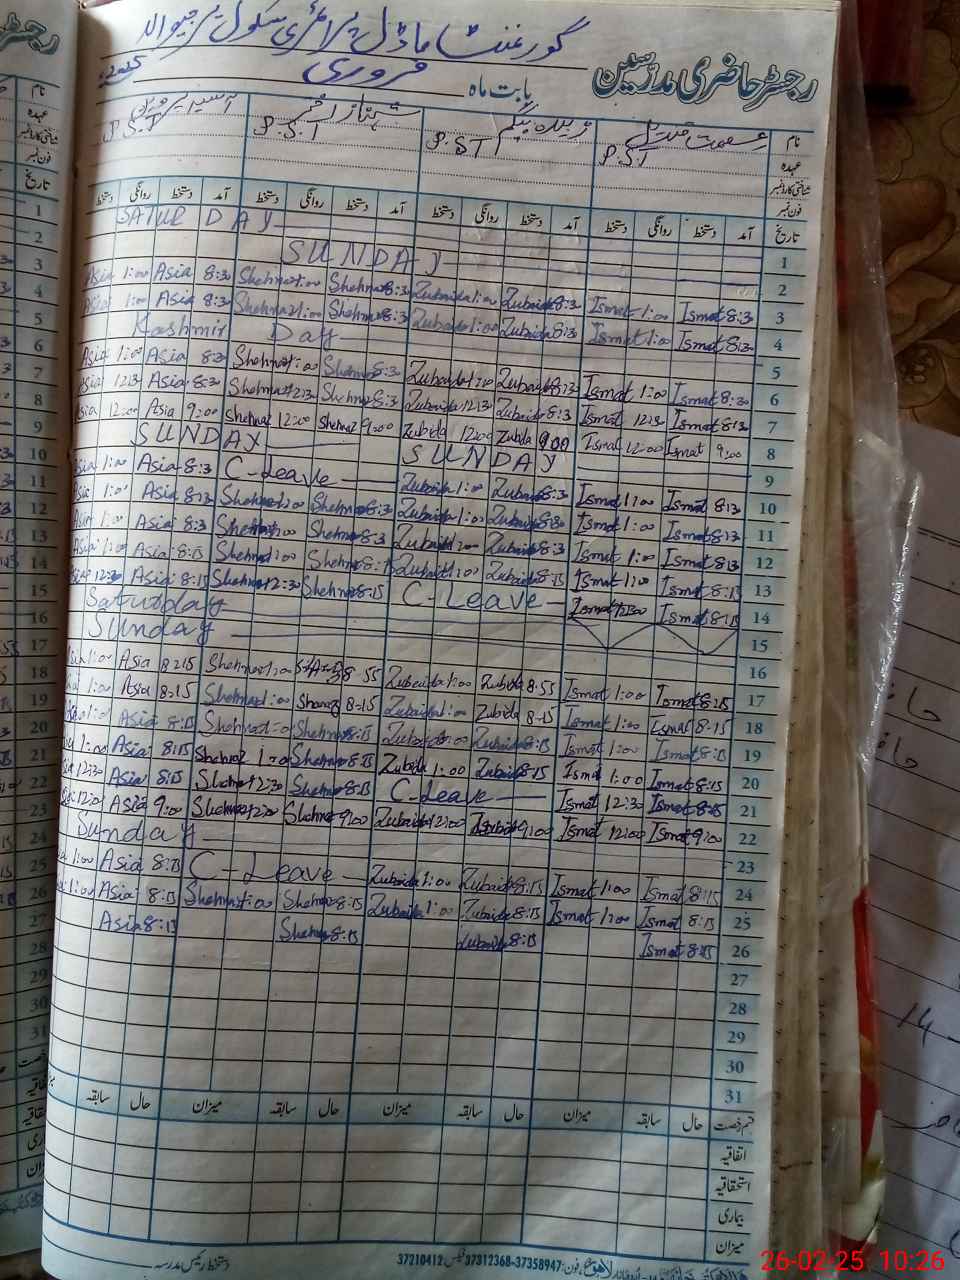 گورنمنٹ ماڈل پرائمری سکول پیرجیوالہ
رجسٹر حاضری مدرسین
بابت ماہ فروری 2025ء
نام عصمت قندیل زبیدہ بیگم شہناز اختر آسیہ پروین
عہدہ P.S.T P.ST P.S.T P.S.T
شناختی کارڈ نمبر
فون نمبر
تاریخ آمد دستخط روانگی دستخط آمد دستخط روانگی دستخط آمد دستخط روانگی دستخط آمد دستخط روانگی دستخط
SATUR DAY 1
SUNDAY 2
Asia 1:00 Asia 8:30 Shehnaz 1:00 Shehnaz 8:30 Zubaida 1:00 Zubaida 8:30 Ismat 1:00 Ismat 8:30 3
Asia 1:00 Asia 8:30 Shehnaz 1:00 Shehnaz 8:30 Zubaida 1:00 Zubaida 8:30 Ismat 1:00 Ismat 8:30 4
Kashmir Day 5
Asia 1:00 Asia 8:30 Shehnaz 1:00 Shehnaz 8:30 Zubaida 1:00 Zubaida 8:30 Ismat 1:00 Ismat 8:30 6
Asia 12:30 Asia 8:30 Shehnaz 12:30 Shehnaz 8:30 Zubaida 12:30 Zubaida 8:30 Ismat 12:30 Ismat 8:30 7
Asia 12:00 Asia 9:00 Shehnaz 12:00 Shehnaz 9:00 Zubida 12:00 Zubida 9:00 Ismat 12:00 Ismat 9:00 8
SUNDAY SUNDAY 9
Asia 1:00 Asia 8:30 C-Leave Zubaida 1:00 Zubaida 8:30 Ismat 1:00 Ismat 8:30 10
Asia 1:00 Asia 8:30 Shehnaz 1:00 Shehnaz 8:30 Zubaida 1:00 Zubaida 8:30 Ismat 1:00 Ismat 8:30 11
Asia 1:00 Asia 8:30 Shehnaz 1:00 Shehnaz 8:30 Zubaida 1:00 Zubaida 8:30 Ismat 1:00 Ismat 8:30 12
Asia 1:00 Asia 8:15 Shehnaz 1:00 Shehnaz 8:15 Zubaida 1:00 Zubaida 8:15 Ismat 1:00 Ismat 8:15 13
Asia 12:30 Asia 8:15 Shehnaz 12:30 Shehnaz 8:15 C-Leave Ismat 12:30 Ismat 8:15 14
Saturday 15
Sunday 16
Asia 1:00 Asia 8:15 Shehnaz 1:00 8:55 Zubaida 1:00 Zubida 8:55 Ismat 1:00 Ismat 8:15 17
1:00 Asia 8:15 Shehnaz 1:00 Shanaz 8:15 Zubaida 1:00 Zubida 8:15 Ismat 1:00 Ismat 8:15 18
1:00 Asia 8:15 Shehnaz 1:00 Shehnaz 8:15 Zubaida 1:00 Zubaida 8:15 Ismat 1:00 Ismat 8:15 19
1:00 Asia 8:15 Shehnaz 1:00 Shehnaz 8:15 Zubida 1:00 Zubaida 8:15 Ismat 1:00 Ismat 8:15 20
12:30 Asia 8:15 Shehnaz 12:30 Shehnaz 8:15 C-Leave Ismat 12:30 Ismat 8:15 21
12:00 Asia 9:00 Shehnaz 12:00 Shehnaz 9:00 Zubaida 12:00 Zubaida 9:00 Ismat 12:00 Ismat 9:00 22
Sunday 23
1:00 Asia 8:15 C-Leave Zubaida 1:00 Zubaida 8:15 Ismat 1:00 Ismat 8:15 24
1:00 Asia 8:15 Shehnaz 1:00 Shehnaz 8:15 Zubaida 1:00 Zubaida 8:15 Ismat 1:00 Ismat 8:15 25
Asia 8:15 Shehnaz 8:15 Zubaida 8:15 Ismat 8:15 26
27
28
29
30
31
قسم رخصت حال سابقہ میزان حال سابقہ میزان حال سابقہ میزان حال سابقہ
اتفاقیہ
استحقاقیہ
بیماری
میزان
دستخط رئیس مدرسہ
فون: 37358947-37312368 فیکس: 37210412
26-02-25 10:26